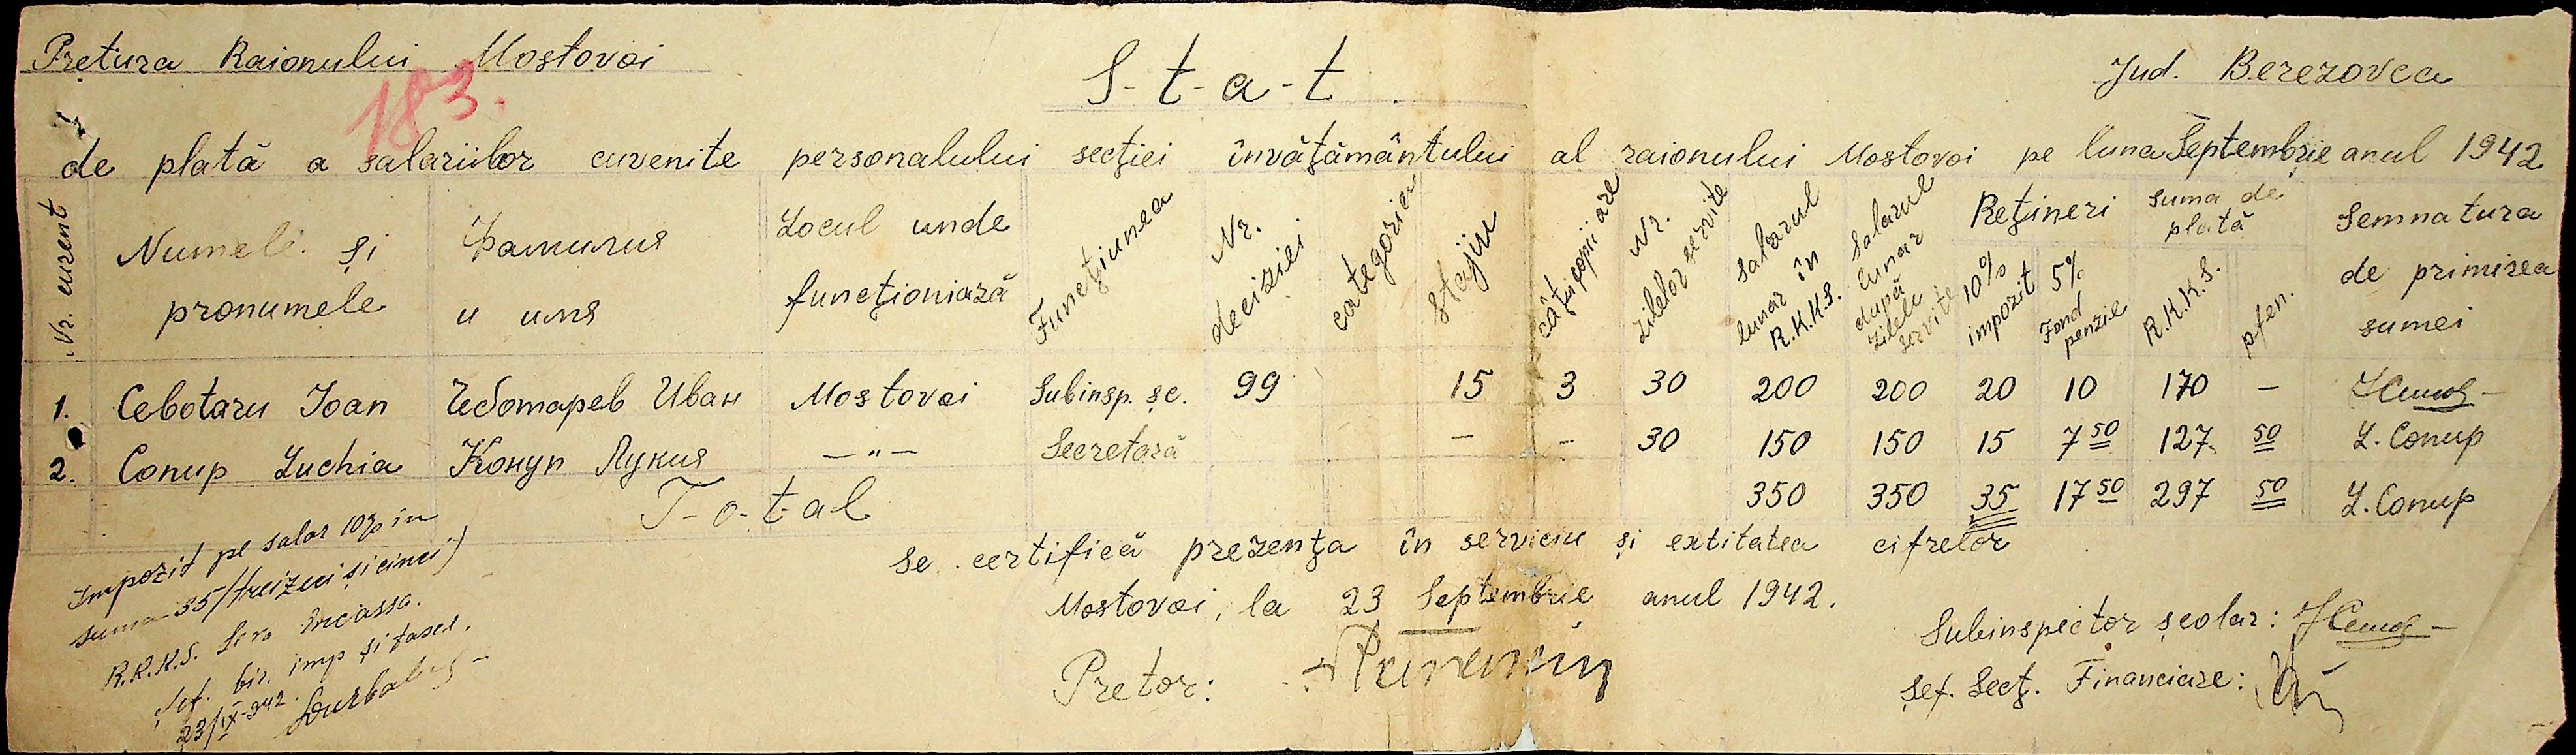 Pretura Raionului Mostovoi
183.
S-t-a-t.
Jud. Berezovca
de plată a salariilor cuvenite personalului secţiei învăţământului al raionului Mostovoi pe luna Septembrie anul 1942
Nr. curent
Numele şi pronumele
Фамилия и имя
Locul unde funcţioniază
Funcţiunea
Nr. deciziei
categoria
stajiu
câţi copii are
Nr. zilelor servite
Salarul lunar în R.K.K.S.
Salarul lunar după zilele servite
Reţineri
10% impozit
5% Fond penzie
Suma de plată
R.K.K.S.
pfen.
Semnatura de primirea sumei
1. Cebotaru Ioan Чеботарев Иван Mostovoi Subinsp. şc. 99 15 3 30 200 200 20 10 170 –
2. Conup Luchia Конуп Лукия —"— Secretară – – 30 150 150 15 7 50 127 50 L. Conup
T-o-t-al 350 350 35 17 50 297 50 L. Conup
Impozit pe salar 10% în
suma 35/treizeci şi cinci)
R.K.K.S. s'a încassa.
Şef. bir. imp şi taxe.
23/IX-942.
Se certifică prezenţa în serviciu şi extitatea cifrelor
Mostovoi, la 23 Septembrie anul 1942.
Pretor:
Subinspector şcolar:
Şef. Secţ. Financiare: